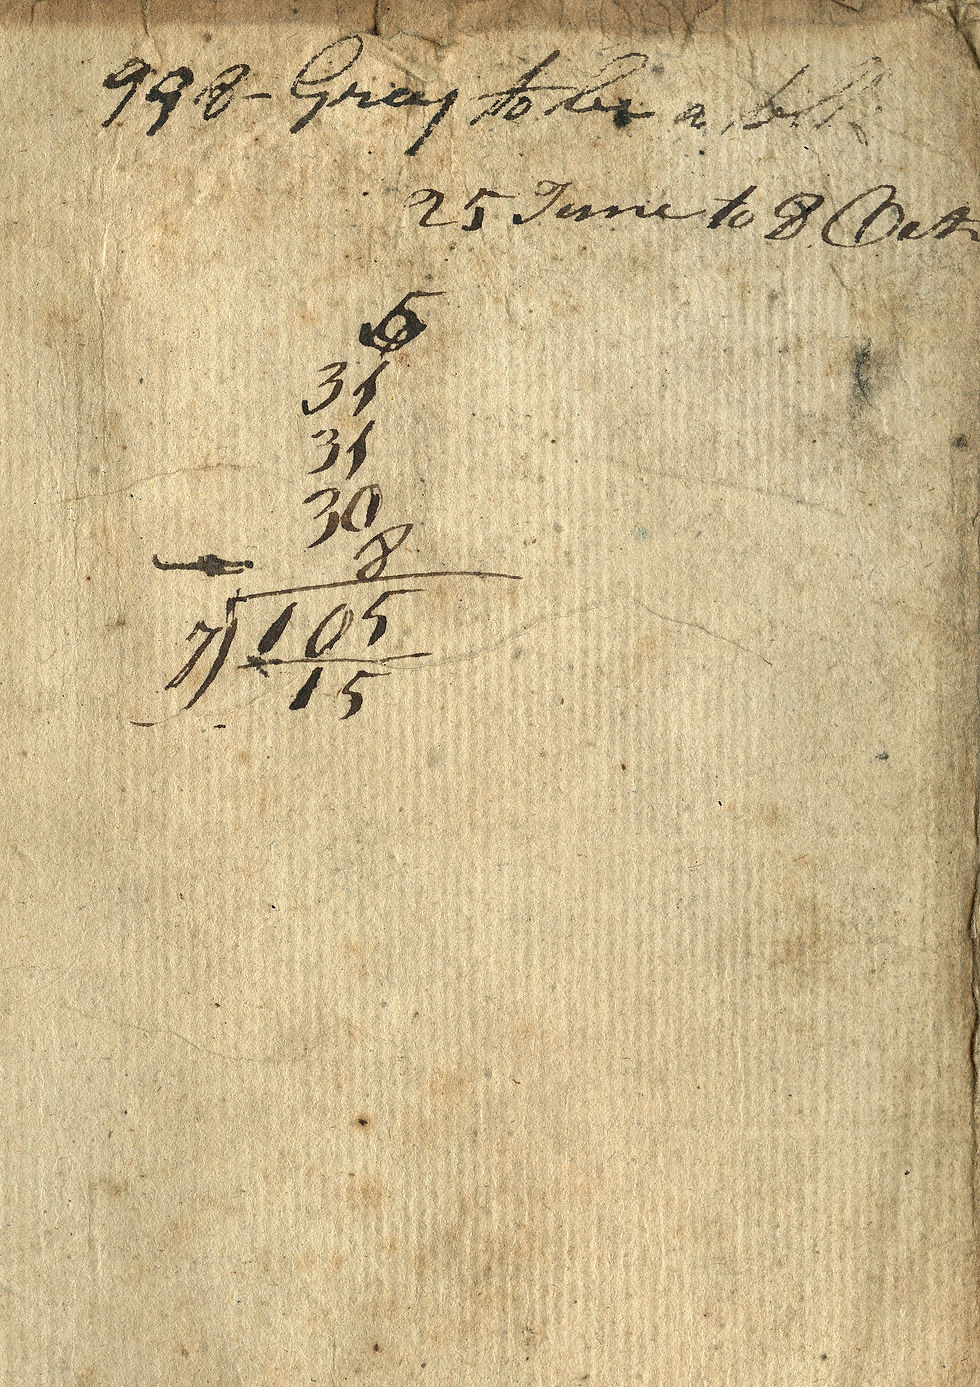 998- Gray to be a
25 June to 8 Oct
5
31
31
30
8
7) 105
15